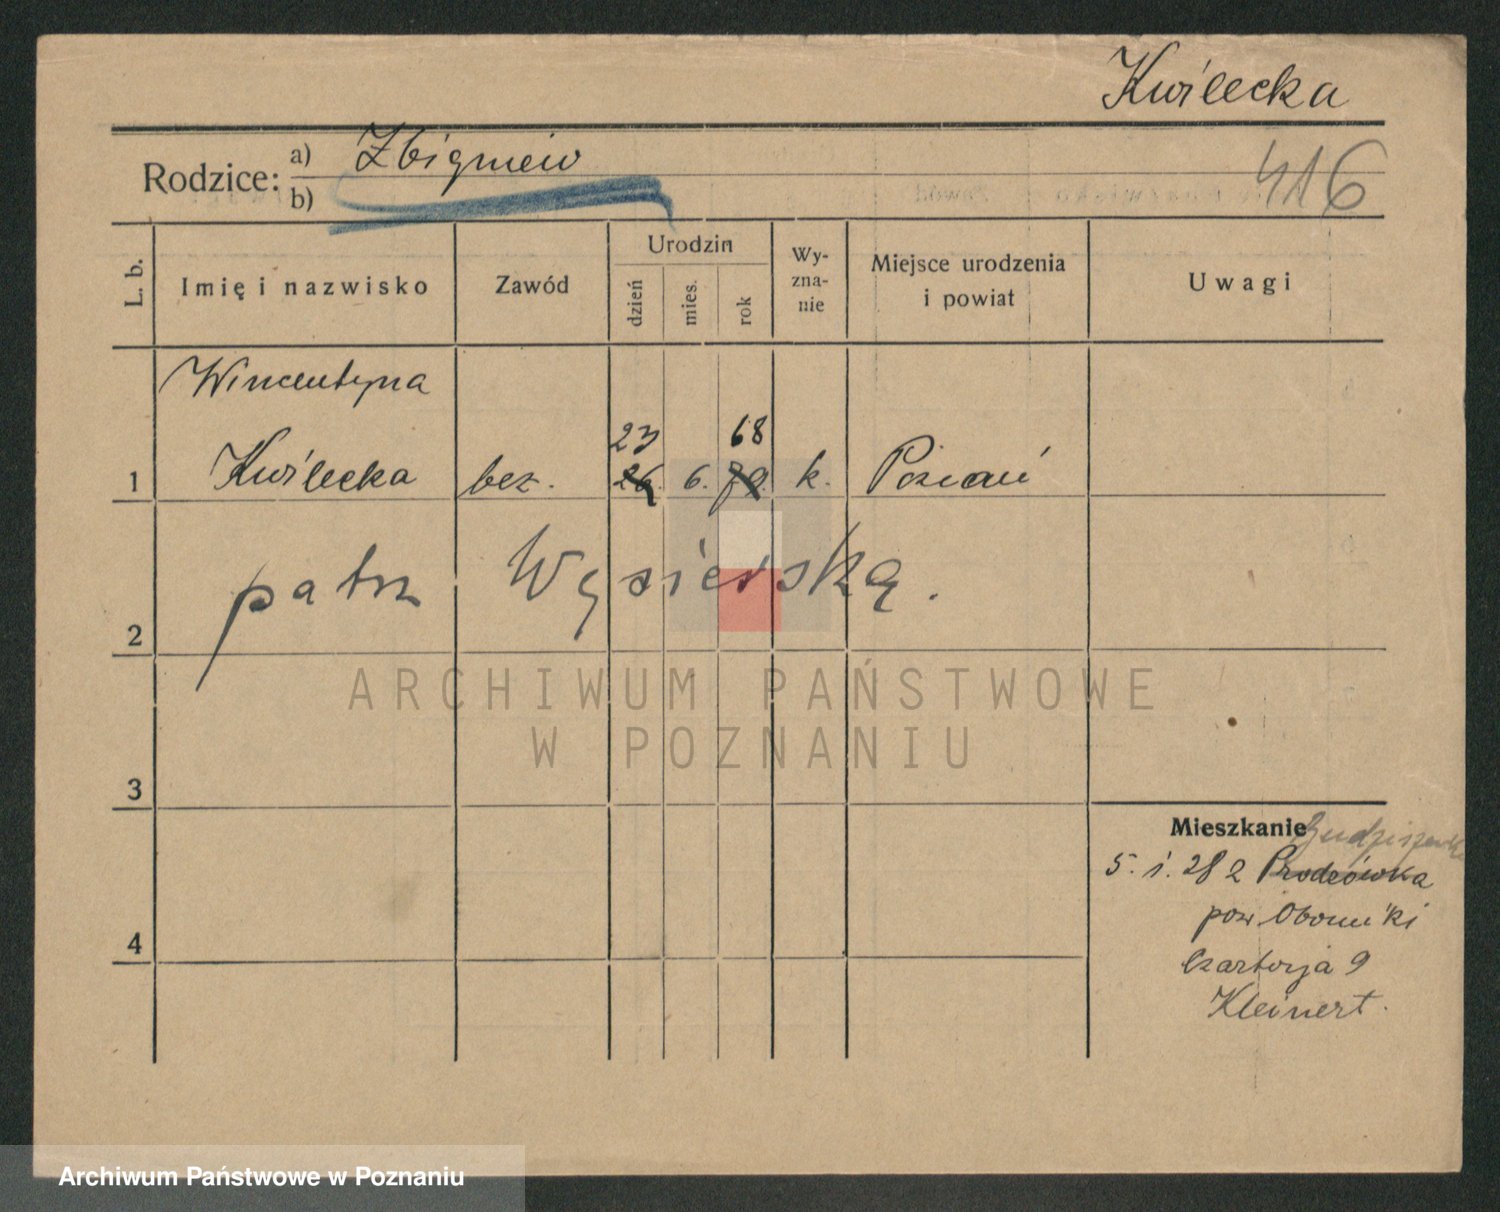 Kwilecka
Rodzice: a) Zbigniew
b)
416
L. b.
Imię i nazwisko
Zawód
Urodzin
dzień
mies.
rok
Wy-
zna-
nie
Miejsce urodzenia
i powiat
Uwagi
Wincentyna
23 68
1 Kwilecka bez. 26. 6. 70. k. Poznań
patrz Węsierską.
2
3
4
ARCHIWUM PAŃSTWOWE
W POZNANIU
Mieszkanie
5. 1. 28 z
pow. Oborniki
Czartorja 9
Kleinert.
Archiwum Państwowe w Poznaniu